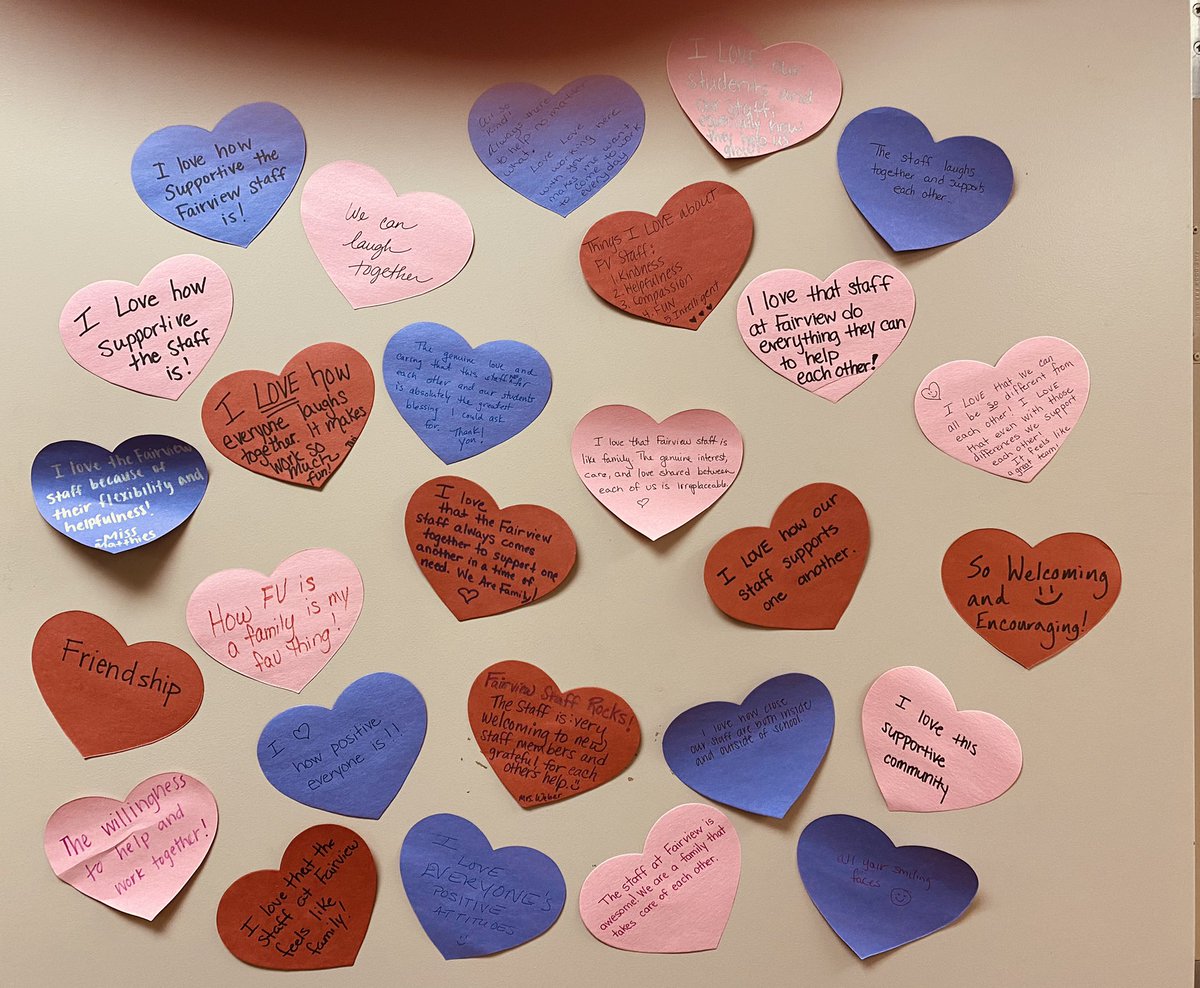 I LOVE our
students and
our staff.
I love how
Supportive the
Fairview staff
is!
Always there
to help no matter
what.
Love Love
working here
with you
makes me want
to come to work
everyday
The staff laughs
together and supports
each other.
We can
laugh
together
Things I LOVE about
FV Staff:
1. Kindness
2. Helpfulness
3. Compassion
4. FUN
5. Intelligent
I Love how
Supportive
the staff
is!
I love that staff
at Fairview do
everything they can
to help
each other!
I LOVE how
everyone laughs
together. It makes
work so
much
fun!
The genuine love and
caring that this staff has for
each other and our students
is absolutely the greatest
blessing I could ask
for. Thank
you!
I love that we can
all be so different from
each other! I LOVE
that even with those
differences we support
each other!
It feels like
a great team!
I love that Fairview staff is
like family. The genuine interest,
care, and love shared between
each of us is irreplaceable.
I love the Fairview
staff because of
their flexibility and
helpfulness!
-Miss
Matthies
I love
that the Fairview
staff always comes
together to support one
another in a time of
need. We Are Family!
I LOVE how our
staff supports
one another.
So Welcoming
and
Encouraging!
How FV is
a family is my
fav thing!
Friendship
I ♡
how positive
everyone is!!
Fairview Staff Rocks!
The Staff is very
welcoming to new
staff members and
grateful for each
others help.
Mrs. Weber
I love how close
our staff are both inside
and outside of school.
I love this
supportive
community
The willingness
to help and
work together!
I love that the
staff at Fairview
feels like
family!
I LOVE
EVERYONE'S
POSITIVE
ATTITUDES
The staff at Fairview is
awesome! We are a family that
takes care of each other.
all your smiling
faces